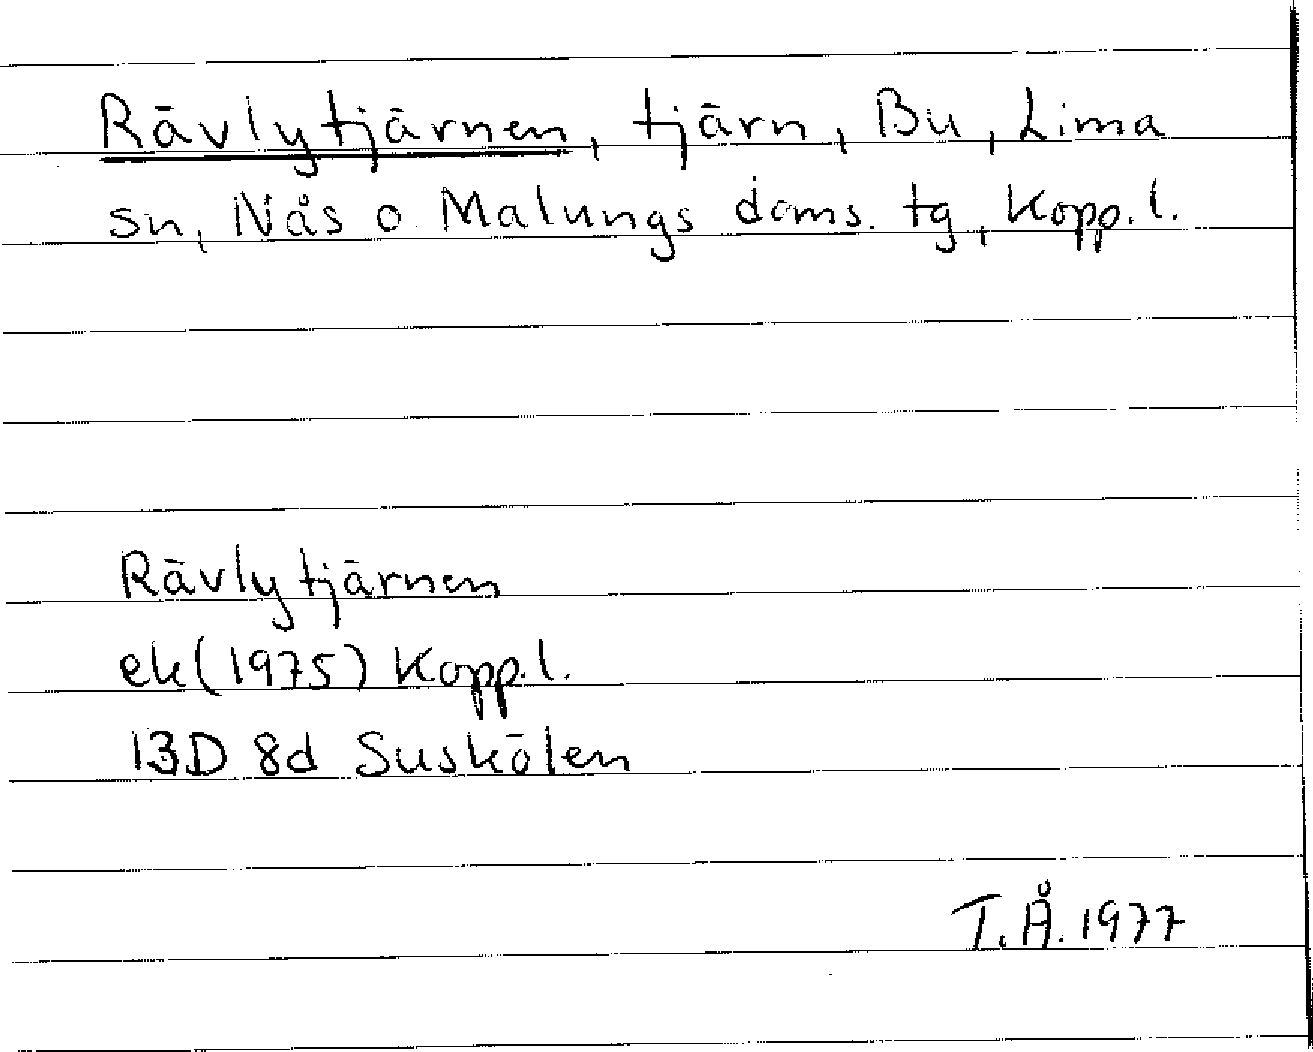 Rävlytjärnen, tjärn, Bu, Lima
sn, Nås o Malungs doms. tg, Kopp.l.
Rävlytjärnen
ek(1975) Kopp.l.
13D 8d Suskölen
T.Å. 1977